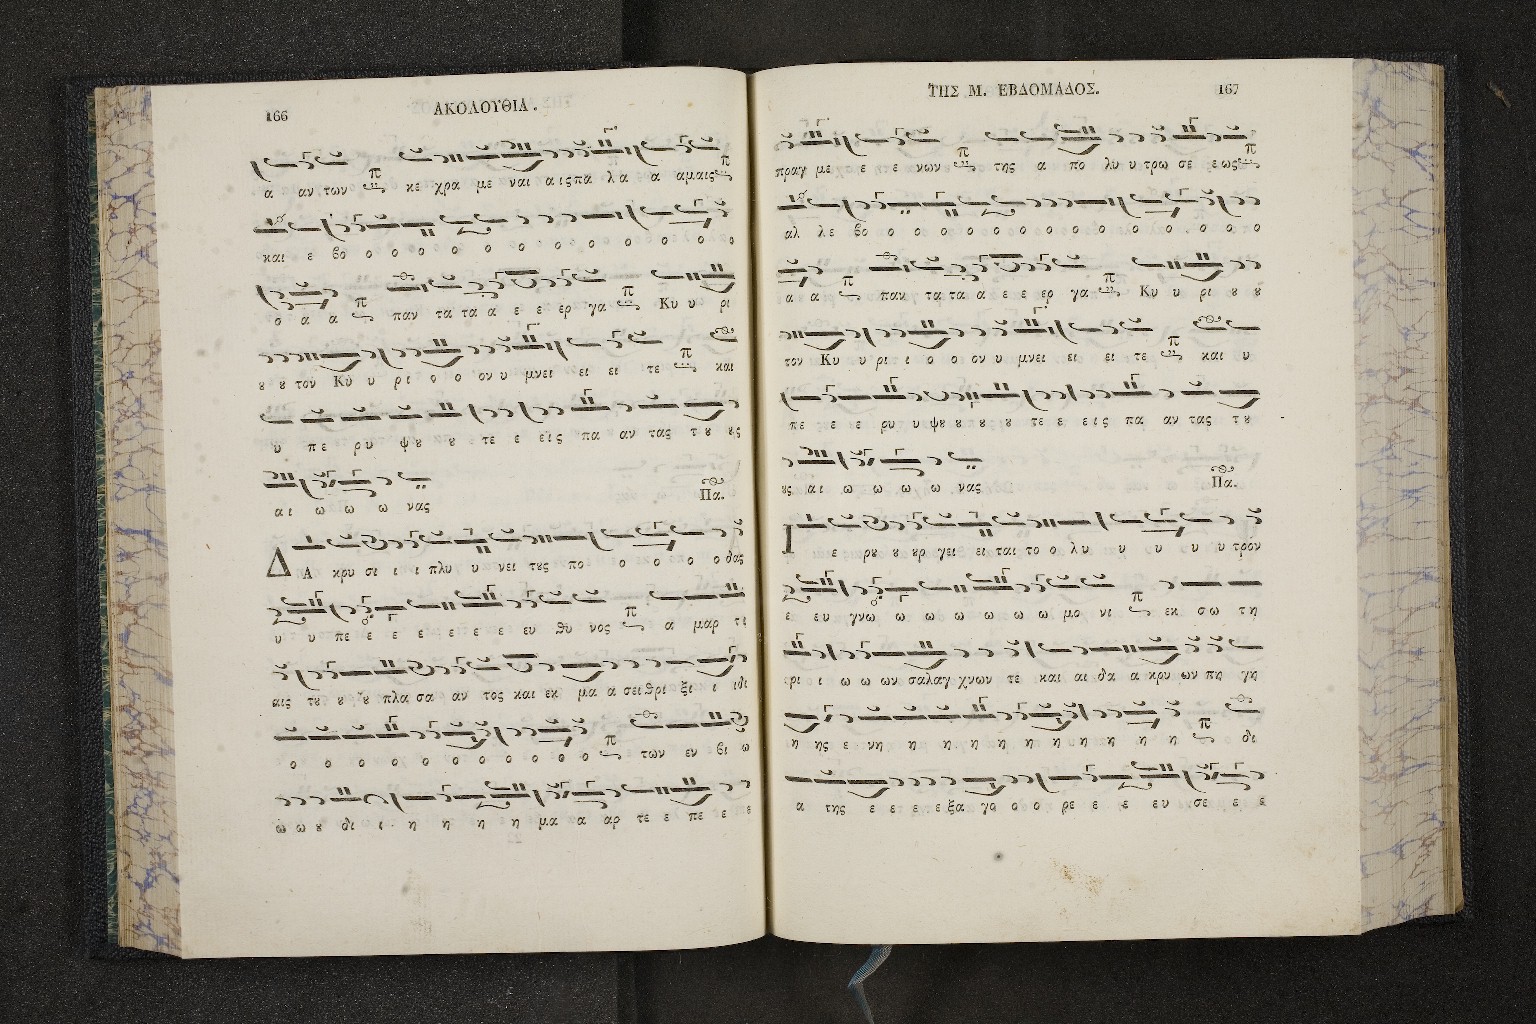 166
ΑΚΟΛΟΥΘΙΑ.
α αν των π κε χρα με ναι αις πα λα α αμαις π
και ε βο ο ο ο ο ο ο ο ο ο ο ο ο ο
ο α α π παν τα τα α ε ε ερ γα π Κυ υ ρι
ȣ ȣ τον Κυ υ ρι ο ο ον υ μνει ει ει τε π και
υ πε ρυ ψȣ ȣ τε ε εις πα αν τας τ ȣ ȣς
αι ω ω ω νας Πα.
Δ Α κρυ σι ι ι πλυ υ νει τȣς πο ο ο ο ο ο δας
υ υ πε ε ε ε ε ε ε ε ευ θυ νος π α μαρ τι
αις τȣ ȣ ȣ πλα σα αν τος και εκ μα α σει θρι ξι ι ιδι
ο ο ο ο ο ο ο ο ο ο ο π των εν βι ω
ω ω ȣ δι ι η η η η μα α αρ τε ε πε ε ε
ΤΗΣ Μ. ΕΒΔΟΜΑΔΟΣ.
167
πραγ με ε ε νων π της α πο λυ υ τρω σε εως π
αλ λε βο ο ο ο ο ο ο ο ο ο ο ο ο ο ο ο
α α π παν τα τα α ε ε ερ γα π Κυ υ ρι ȣ ȣ
τον Κυ υ ρι ι ο ο ον υ μνει ει ει τε π και υ
πε ε ε ρυ υ ψȣ ȣ ȣ ȣ τε ε εις πα αν τας τȣ
ȣς αι ω ω ω ω νας Πα.
ε ρȣ ȣ ȣρ γει ει ται το ο λυ υ υ υ υ τρον
ε ευ γνω ω ω ω ω ω ω μο νι π εκ σω τη
ρι ι ω ω ων σπλαγ χνων τε και αι δα α κρυ ων πη γη
η ης ε νη η η η η η η η η η η π δι
α της ε ε ε ε ξα γο ο ο ρε ε ε ευ σε ε ε